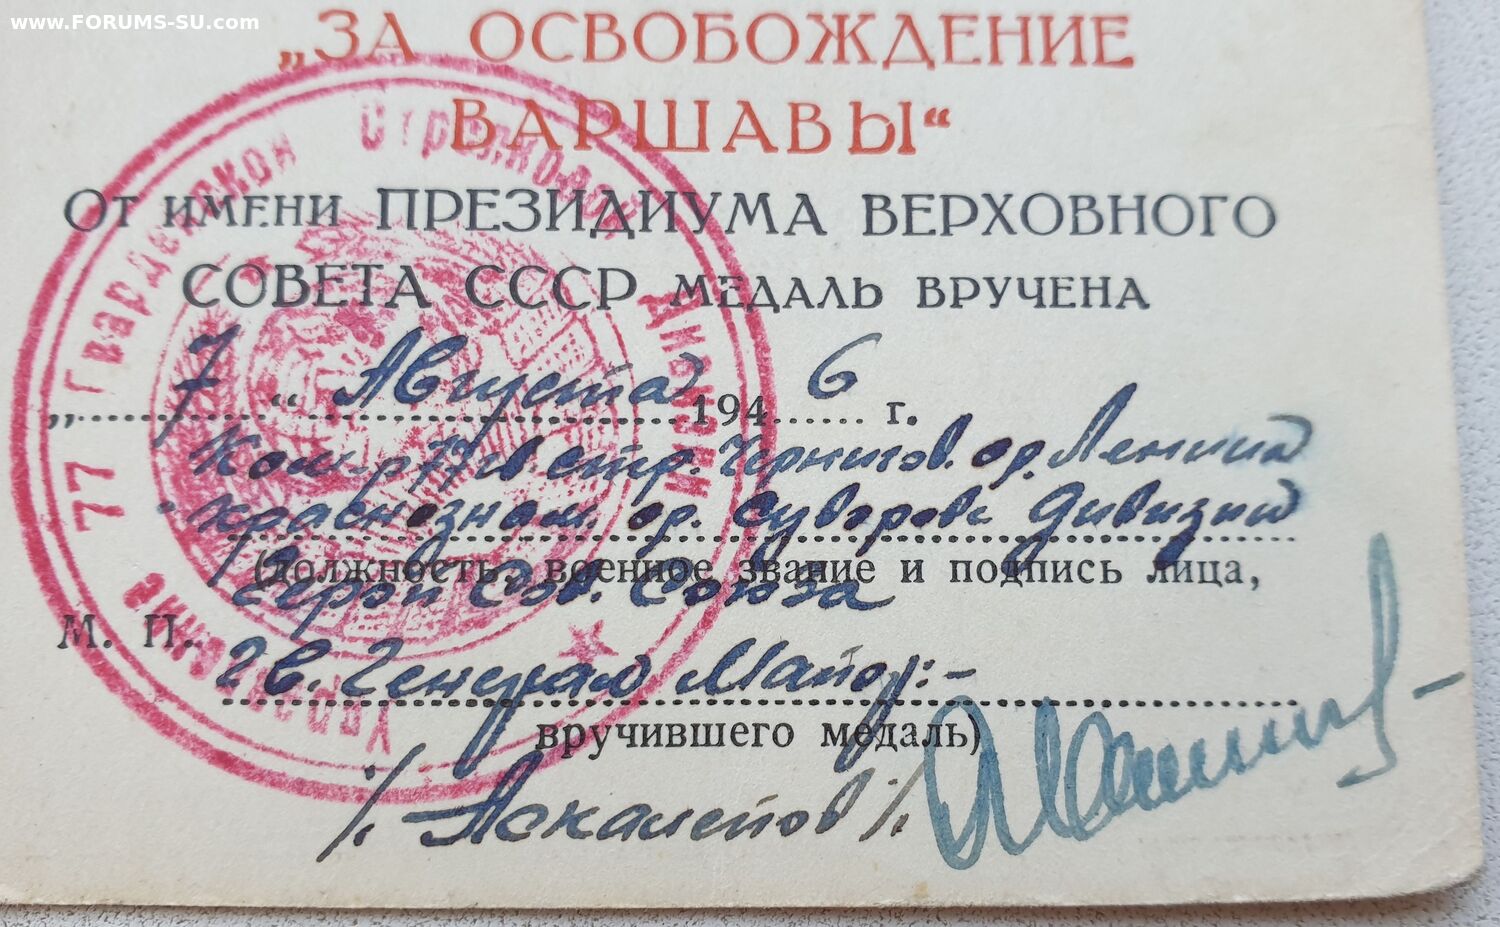 www.FORUMS-SU.com
„ЗА ОСВОБОЖДЕНИЕ
ВАРШАВЫ“
От имени ПРЕЗИДИУМА ВЕРХОВНОГО
СОВЕТА СССР медаль вручена
„ 7 “ Августа 194 6 г.
Ком-р 77 гв стр. Чернигов. ор. Ленина
Краснознам. ор. Суворова дивизии
(должность, военное звание и подпись лица,
Герой Сов. Союза
М. П.
Гв. Генерал Майор:-
вручившего медаль)
/. Аскалепов /.
77 Гвардейской Стрелковой Дивизии